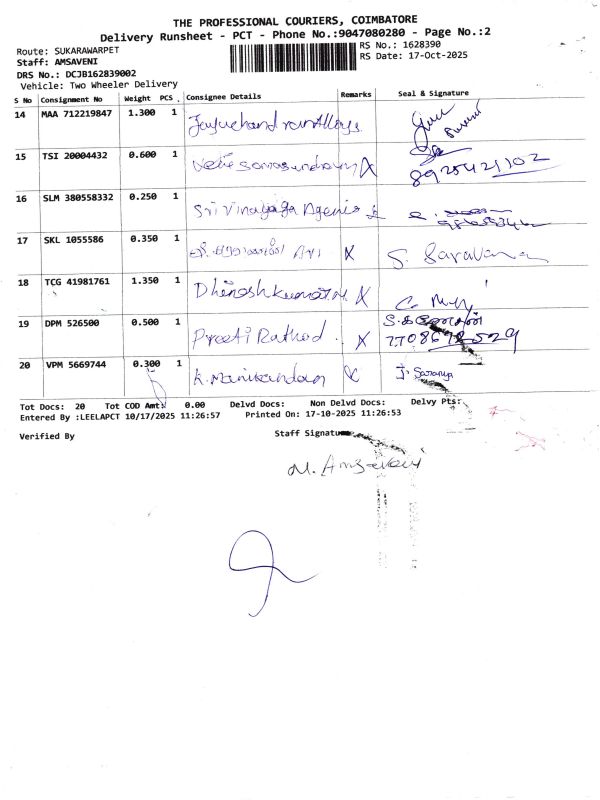 THE PROFESSIONAL COURIERS, COIMBATORE
Delivery Runsheet - PCT - Phone No.:9047080280 - Page No.:2
Route: SUKARAWARPET
RS No.: 1628390
Staff: AMSAVENI
RS Date: 17-Oct-2025
DRS No.: DCJB162839002
Vehicle: Two Wheeler Delivery
S No Consignment No Weight PCS. Consignee Details Remarks Seal & Signature
14 MAA 712219847 1.300 1
15 TSI 20004432 0.600 1 8925421102
16 SLM 380558332 0.250 1 Sri Vinayaga Agencis
17 SKL 1055586 0.350 1 X S. Saravana
18 TCG 41981761 1.350 1 Dhineshkumar M X
19 DPM 526500 0.500 1 Preeti Rathod. X 7708678529
20 VPM 5669744 0.300 1 K. Manikandan X J. Saranya
Tot Docs: 20 Tot COD Amt: 0.00 Delvd Docs: Non Delvd Docs: Delvy Pts:
Entered By :LEELAPCT 10/17/2025 11:26:57 Printed On: 17-10-2025 11:26:53
Verified By Staff Signature
M. Amsaveni